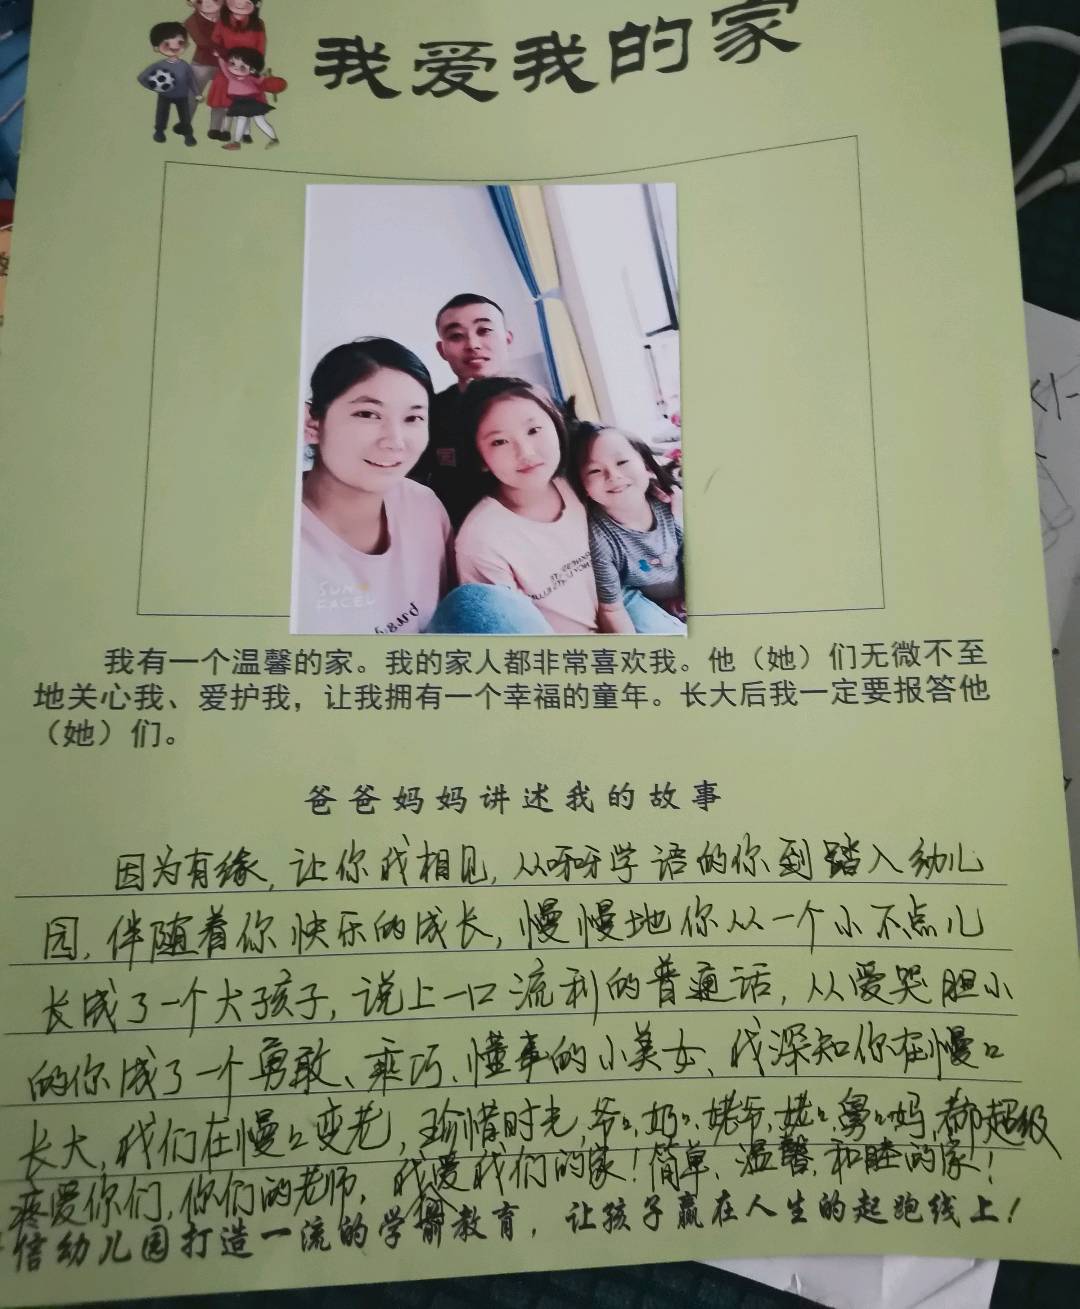 我爱我的家
SUN
FACEU
我有一个温馨的家。我的家人都非常喜欢我。他（她）们无微不至
地关心我、爱护我，让我拥有一个幸福的童年。长大后我一定要报答他
（她）们。
爸爸妈妈讲述我的故事
因为有缘，让你我相见，从呀呀学语的你到踏入幼儿
园，伴随着你快乐的成长，慢慢地你从一个小不点儿
长成了一个大孩子，说上一口流利的普通话，从爱哭胆小
的你成了一个勇敢、乖巧、懂事的小美女、我深知你在慢々
长大，我们在慢々变老，珍惜时光，爷々，奶々，姥爷，姥々，舅々妈，都超级
疼爱你们，你们的老师，我爱我们的家！简单、温馨，和睦的家！
信幼儿园打造一流的学前教育，让孩子赢在人生的起跑线上！